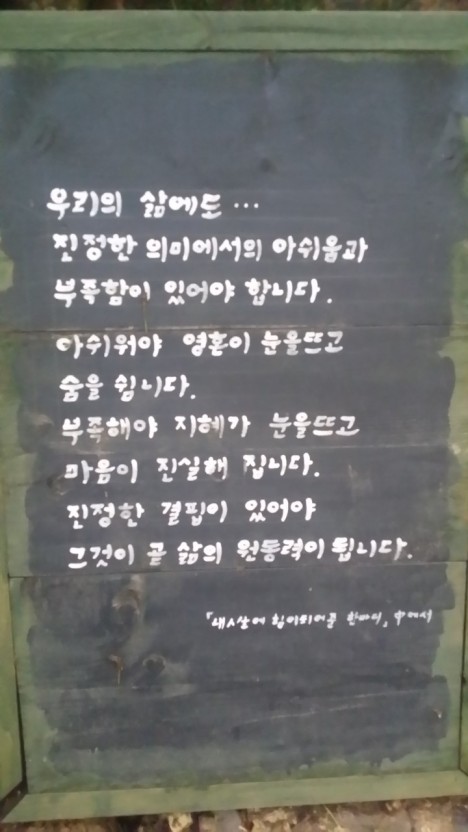 우리의 삶에도...
진정한 의미에서의 아쉬움과
부족함이 있어야 합니다.
아쉬워야 영혼이 눈을뜨고
숨을 쉽니다.
부족해야 지혜가 눈을뜨고
마음이 진실해 집니다.
진정한 결핍이 있어야
그것이 곧 삶의 원동력이 됩니다.
힘이되어줄 한마디」 中에서